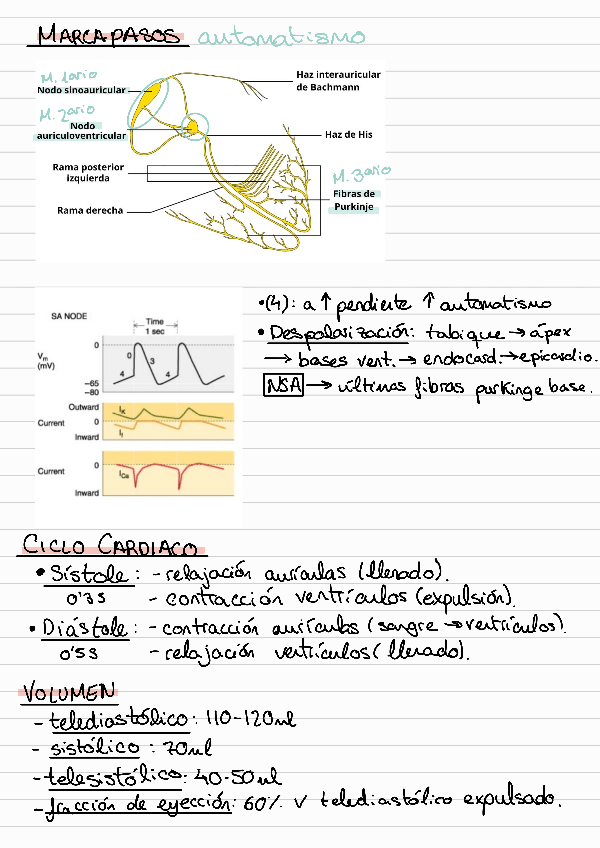 MARCAPASOS automatismo
M. 1ario
Nodo sinoauricular
Haz interauricular
de Bachmann
M. 2ario
Nodo
auriculoventricular
Haz de His
Rama posterior
izquierda
M. 3ario
Fibras de
Purkinje
Rama derecha
SA NODE
Time
1 sec
0
Vm
(mV)
0
3
4
4
-65
-80
Outward
Current
0
Inward
IK
If
Current
0
ICa
Inward
•(4): a ↑ pendiente ↑ automatismo
• Despolarización: tabique → ápex
→ bases vent. → endocard. → epicardio.
NSA → últimas fibras purkinge base.
CICLO CARDIACO
• Sístole: - relajación aurículas (llenado).
0'3s - contracción ventrículos (expulsión).
• Diástole: - contracción aurículas (sangre → ventrículos).
0'5s - relajación ventrículos (llenado).
VOLUMEN
- telediastólico: 110-120ml
- sistólico: 70ml
- telesistólico: 40-50ml
- fracción de eyección: 60% V telediastólico expulsado.